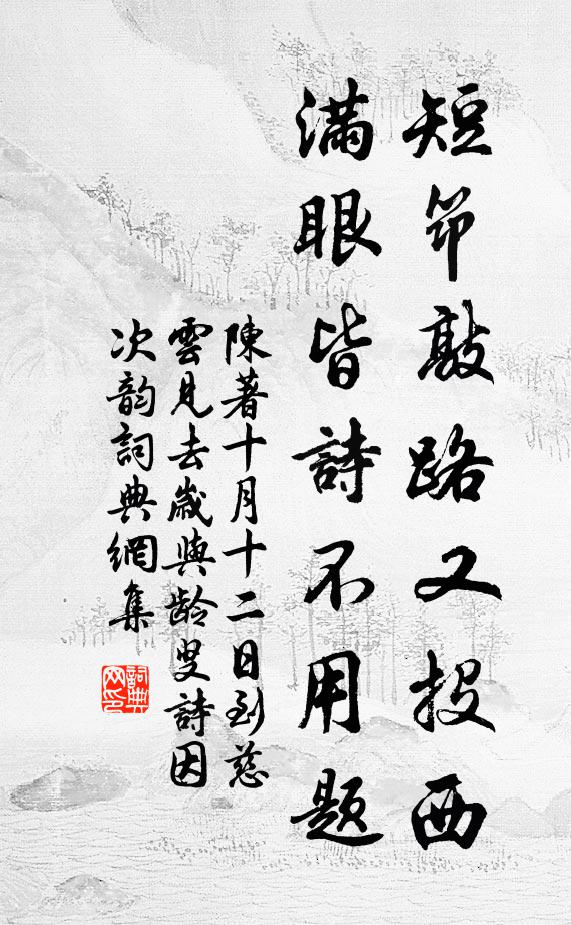 短笻敲路又投西
滿眼皆詩不用題
陳著十月十二日到慈
雲見去歲與龄叟詩因
次韵詞典網集
詞典网印